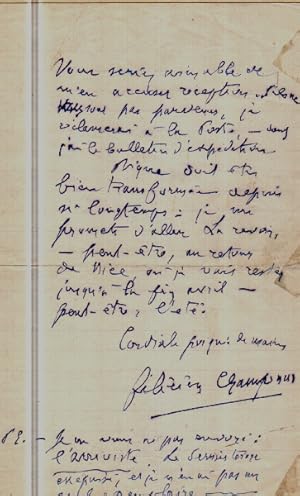 Vous seriez aimable de
m'en accuser réception. S'ils ne
pas parvenus, je
réclamerai à la Poste, – dont
j'ai le bulletin d'expédition
doit être
bien transformée depuis
si longtemps : je me
promets d'aller la revoir,
– peut-être, au retour
de Nice, où je vais rester
jusqu'à la fin avril –
peut-être, l'été.
Cordiale poignée de mains
Félicien Champsaur
P.S. – Je ne vous ai pas envoyé :
l'arriviste. Le dernier tirage
est épuisé, et je n'en ai pas un